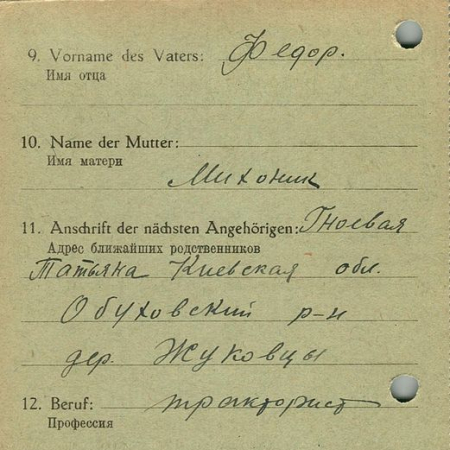 9. Vorname des Vaters: Федор.
Имя отца
10. Name der Mutter:
Имя матери
Михоник
11. Anschrift der nächsten Angehörigen: Гноевая
Адрес ближайших родственников
Татьяна Киевская обл.
Обуховский р-н
дер. Жуковцы
12. Beruf: тракторист
Профессия